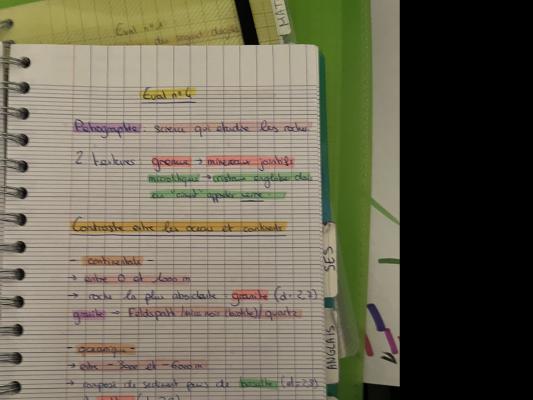 MAT
Eval n°1
Eval n°4
Pétrographie : science qui étudie les roches
2 textures grenue → minéraux jointifs
microlitique → cristaux englobé dans
un "ciment" appeler verre.
Contraste entre les océans et continents
- continentale -
→ entre 0 et 1000 m
→ roche la plus abondante = granite (d = 2,7)
granite → Feldspath / mica noir (biotite) / quartz
- océanique -
→ entre -3000 et -6000 m
→ composé de sédiment puis de basalte (d=2,9)
SES
ANGLAIS